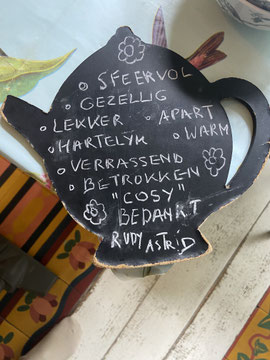 SFEERVOL
GEZELLIG
LEKKER APART
HARTELYK WARM
VERRASSEND
BETROKKEN
"COSY"
BEDANKT
RUDY ASTRID